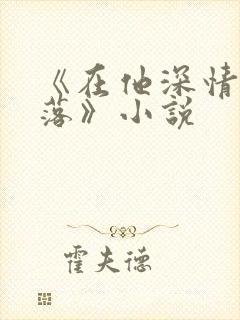 《在他深情
落》小說
霍夫德